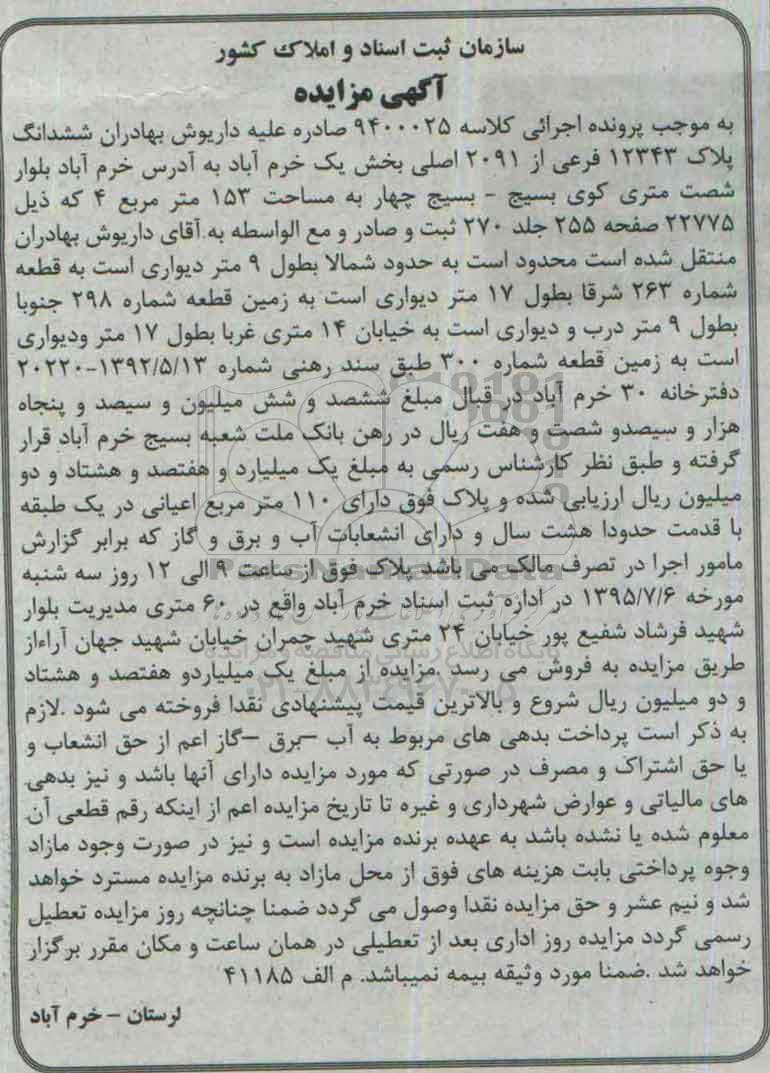 سازمان ثبت اسناد و املاک کشور
آگهی مزایده
به موجب پرونده اجرائی کلاسه ۹۴۰۰۰۲۵ صادره علیه داریوش بهادران ششدانگ
پلاک ۱۲۳۴۳ فرعی از ۲۰۹۱ اصلی بخش یک خرم آباد به آدرس خرم آباد بلوار
شصت متری کوی بسیج - بسیج چهار به مساحت ۱۵۳ متر مربع ۴ که ذیل
۲۲۷۷۵ صفحه ۲۵۵ جلد ۲۷۰ ثبت و صادر و مع الواسطه به آقای داریوش بهادران
منتقل شده است محدود است به حدود شمالا بطول ۹ متر دیواری است به قطعه
شماره ۲۶۳ شرقا بطول ۱۷ متر دیواری است به زمین قطعه شماره ۲۹۸ جنوبا
بطول ۹ متر درب و دیواری است به خیابان ۱۴ متری غربا بطول ۱۷ متر ودیواری
است به زمین قطعه شماره ۳۰۰ طبق سند رهنی شماره ۱۳۹۲/۵/۱۳-۲۰۲۲۰
دفترخانه ۳۰ خرم آباد در قبال مبلغ ششصد و شش میلیون و سیصد و پنجاه
هزار و سیصدو شصت و هفت ریال در رهن بانک ملت شعبه بسیج خرم آباد قرار
گرفته و طبق نظر کارشناس رسمی به مبلغ یک میلیارد و هفتصد و هشتاد و دو
میلیون ریال ارزیابی شده و پلاک فوق دارای ۱۱۰ متر مربع اعیانی در یک طبقه
با قدمت حدودا هشت سال و دارای انشعابات آب و برق و گاز که برابر گزارش
مامور اجرا در تصرف مالک می باشد پلاک فوق از ساعت ۹ الی ۱۲ روز سه شنبه
مورخه ۱۳۹۵/۷/۶ در اداره ثبت اسناد خرم آباد واقع در ۶۰ متری مدیریت بلوار
شهید فرشاد شفیع پور خیابان ۲۴ متری شهید چمران خیابان شهید جهان آراءاز
طریق مزایده به فروش می رسد .مزایده از مبلغ یک میلیاردو هفتصد و هشتاد
و دو میلیون ریال شروع و بالاترین قیمت پیشنهادی نقدا فروخته می شود .لازم
به ذکر است پرداخت بدهی های مربوط به آب –برق –گاز اعم از حق انشعاب و
یا حق اشتراک و مصرف در صورتی که مورد مزایده دارای آنها باشد و نیز بدهی
های مالیاتی و عوارض شهرداری و غیره تا تاریخ مزایده اعم از اینکه رقم قطعی آن
معلوم شده یا نشده باشد به عهده برنده مزایده است و نیز در صورت وجود مازاد
وجوه پرداختی بابت هزینه های فوق از محل مازاد به برنده مزایده مسترد خواهد
شد و نیم عشر و حق مزایده نقدا وصول می گردد ضمنا چنانچه روز مزایده تعطیل
رسمی گردد مزایده روز اداری بعد از تعطیلی در همان ساعت و مکان مقرر برگزار
خواهد شد .ضمنا مورد وثیقه بیمه نمیباشد. م الف ۴۱۱۸۵
لرستان - خرم آباد